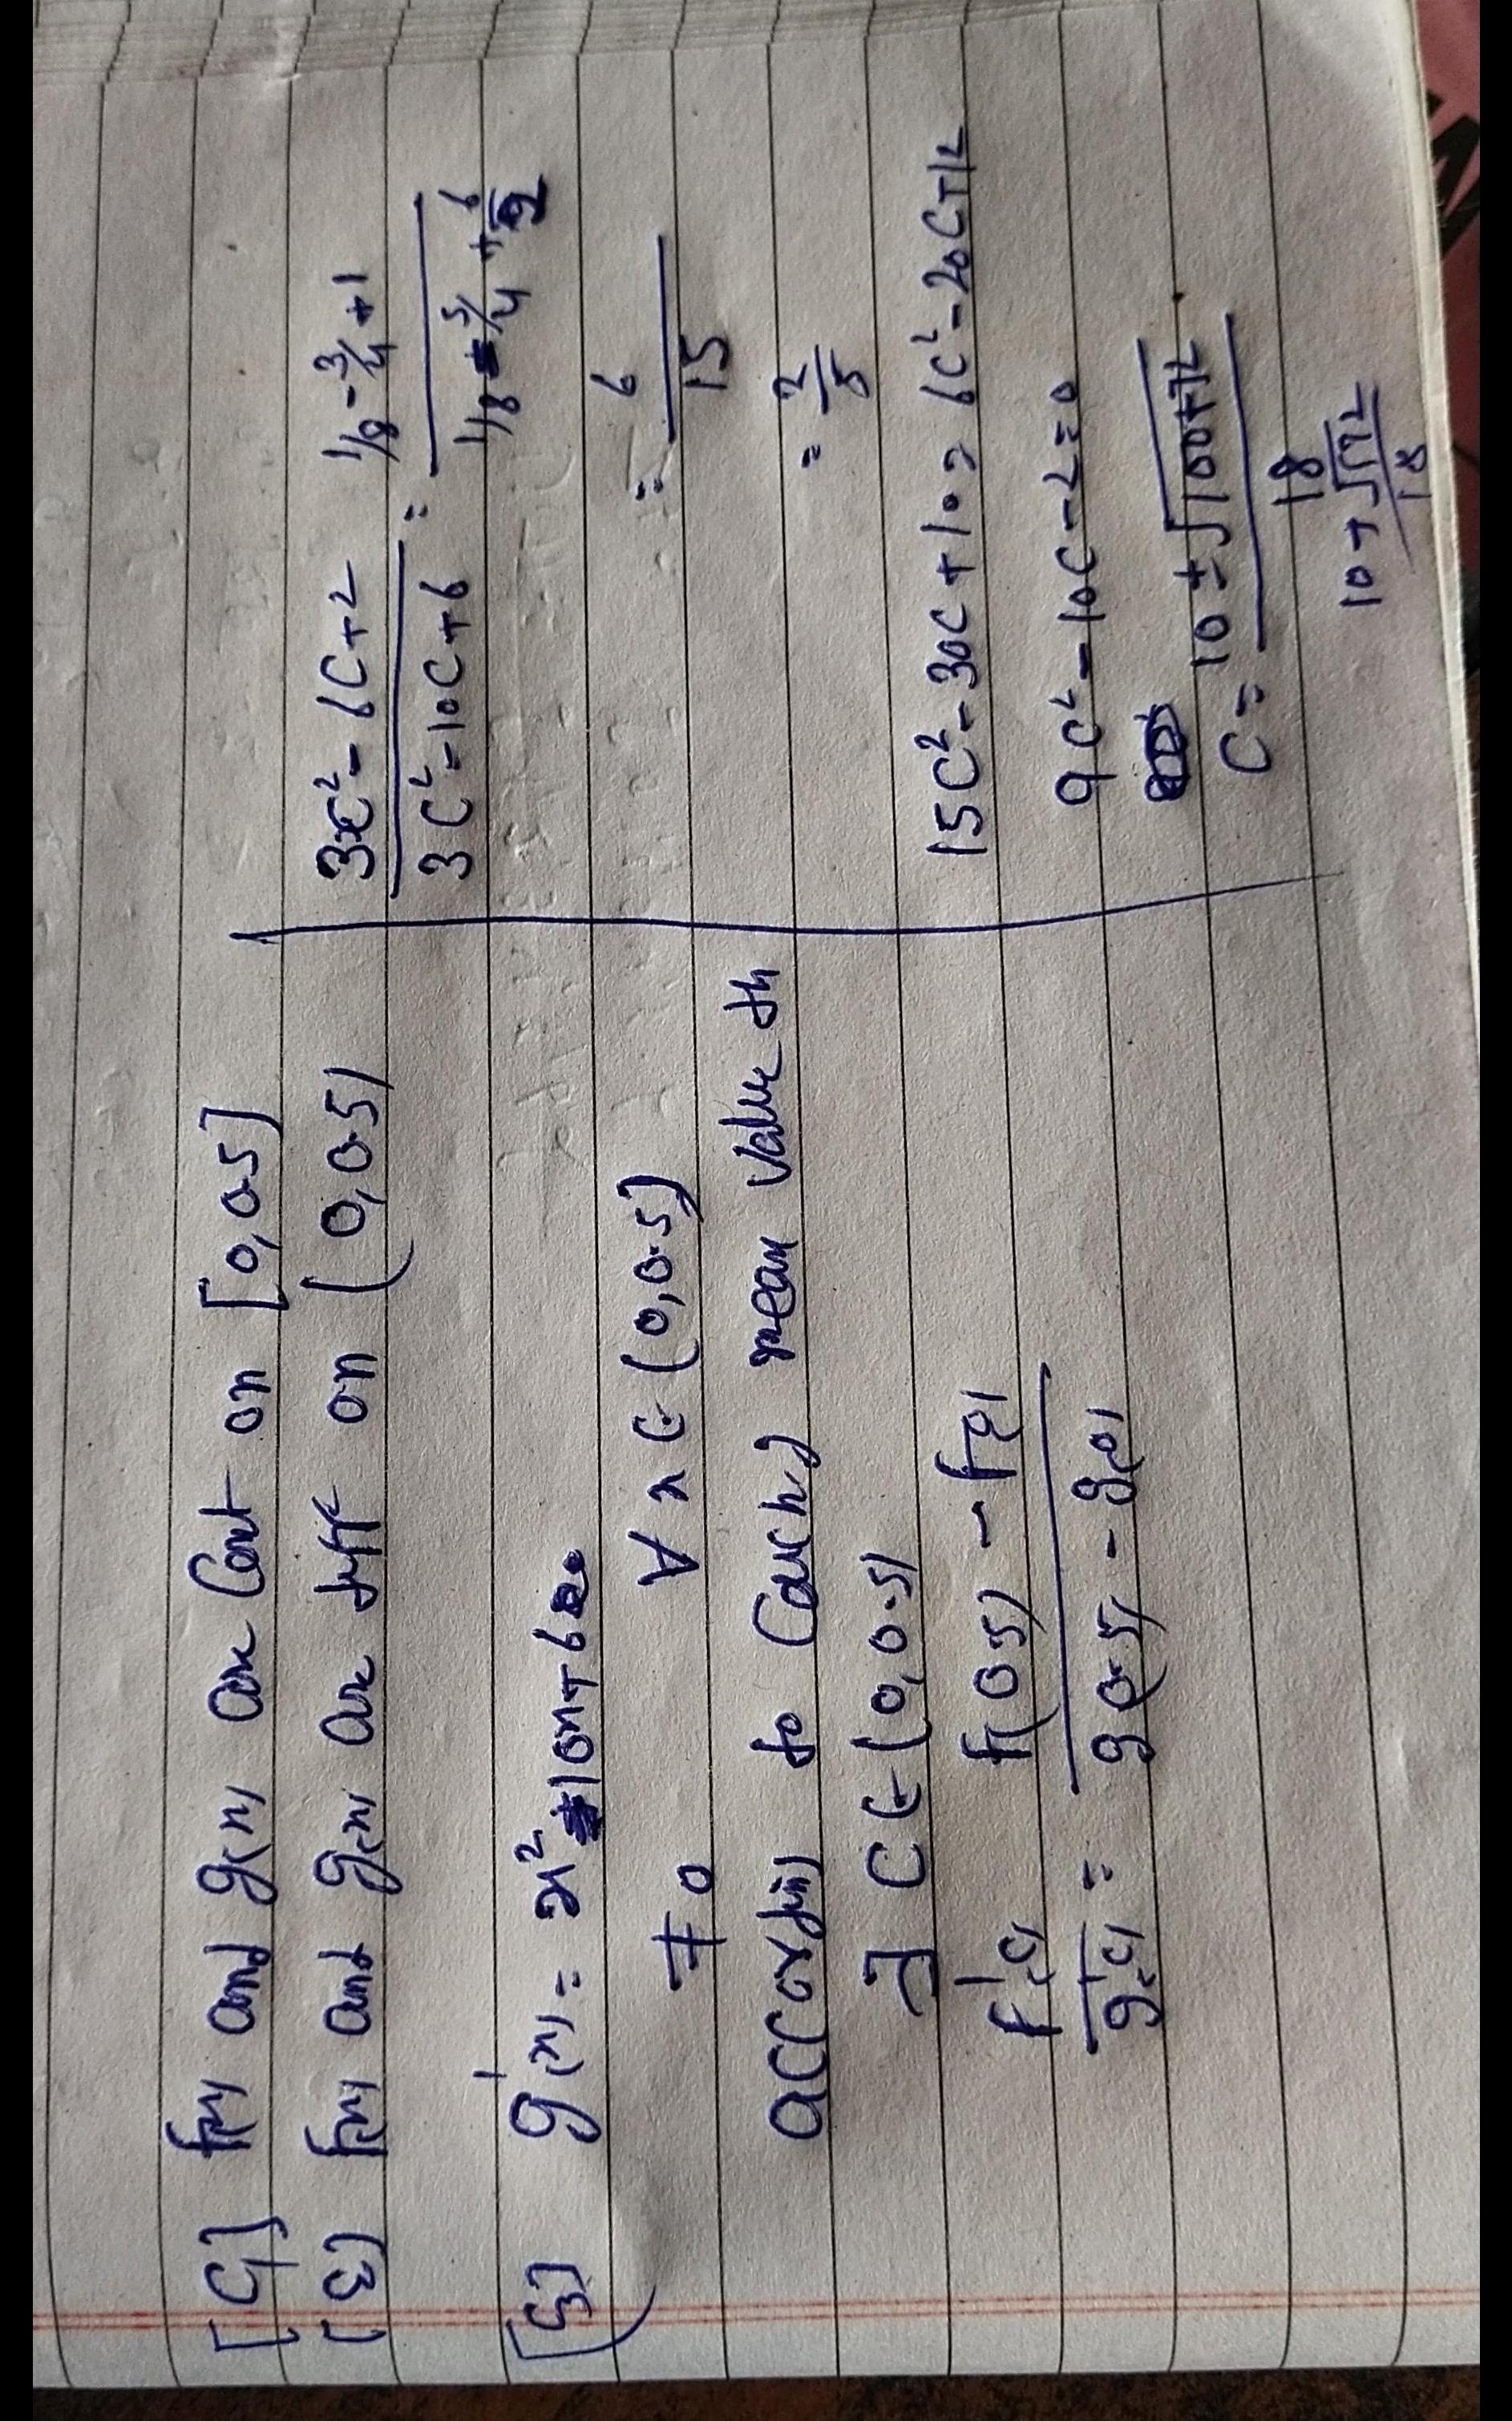 [C1] f(x) and g(x) are Cont on [0,0.5]
(2) f(x) and g(x) are diff on (0,0.5)
(3) g'(x) = x² - 10x + 6
≠ 0 ∀ x ∈ (0,0.5)
according to Cauchy mean value th
∃ C ∈ (0,0.5)
f'(c) f(0.5) - f(0)
g'(c) = g(0.5) - g(0)
3c² - 6C + 2 1/8 - 3/4 + 1
3C² - 10C + 6 = 1/8 - 5/4 + 6/2
= 6
15
= 2/5
15C² - 30C + 10 = 6C² - 20C + 12
9C² - 10C - 2 = 0
C = 10 ± √100+72
18
10 ± √172
18